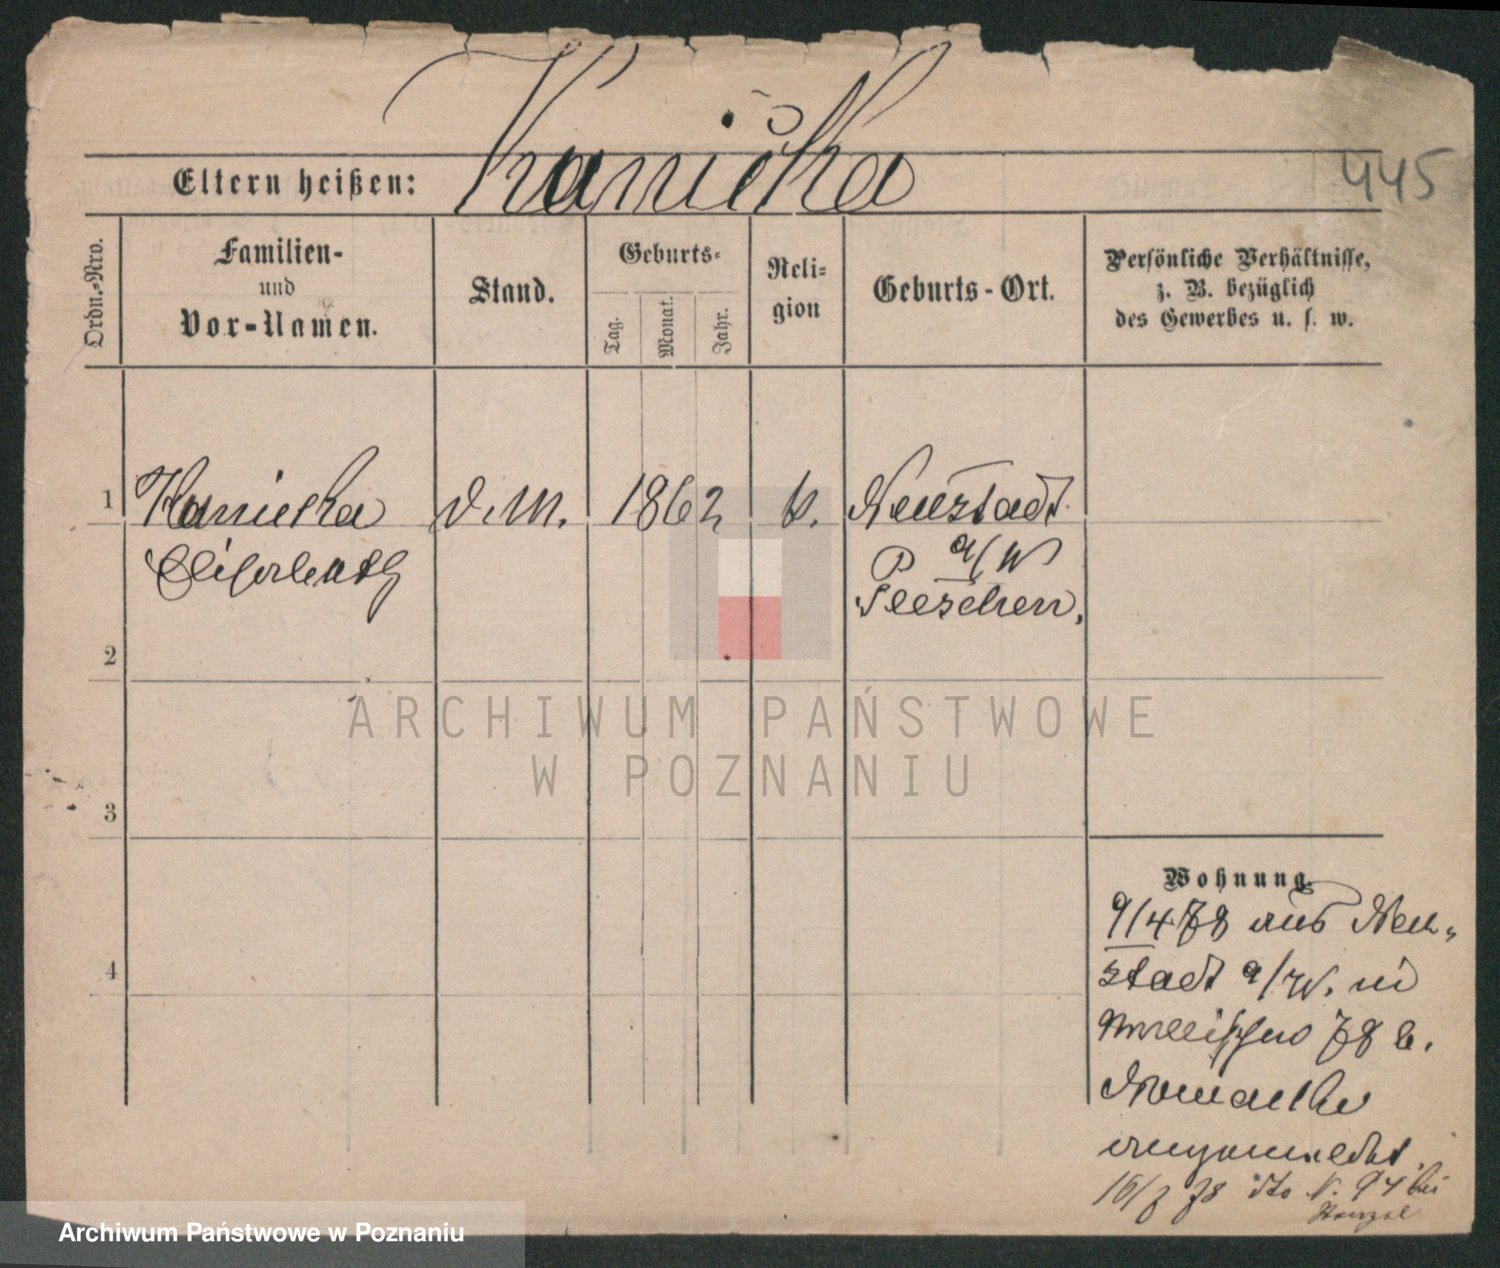 445
Eltern heißen: Kaniecka
Ordn.-Nro.
Familien-
und
Vor-Namen.
Stand.
Geburts-
Tag.
Monat.
Jahr.
Reli-
gion
Geburts-Ort.
Persönliche Verhältnisse,
z. B. bezüglich
des Gewerbes u. s. w.
1
Kaniecka
Elisabeth
d. M.
1862
k.
Neustadt
a/W
P
Pleschen.
2
3
4
Wohnung.
9/4 78 aus Neu-
stadt a/W. in
78 b.
angemeldet.
16/7 78 dto N. 94 bei
ARCHIWUM PAŃSTWOWE
W POZNANIU
Archiwum Państwowe w Poznaniu